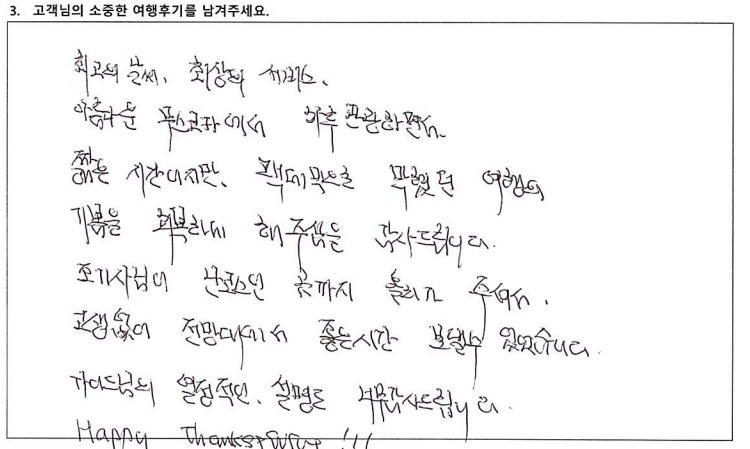 3. 고객님의 소중한 여행후기를 남겨주세요.
최고의 날씨, 최상의 서비스.
아름다운 무스코카에서 하루 관광하면서.
짧은 시간이지만, 막혔던 여행의
기쁨을 회복하게 해 주심을 감사드립니다.
조기사님이 난코스인 곳까지 올라가 주셔서,
고생없이 전망대에서 좋은시간 보낼수 있었습니다.
가이드님의 열정적인, 설명도 너무감사드립니다.
Happy Thanksgiving !!!